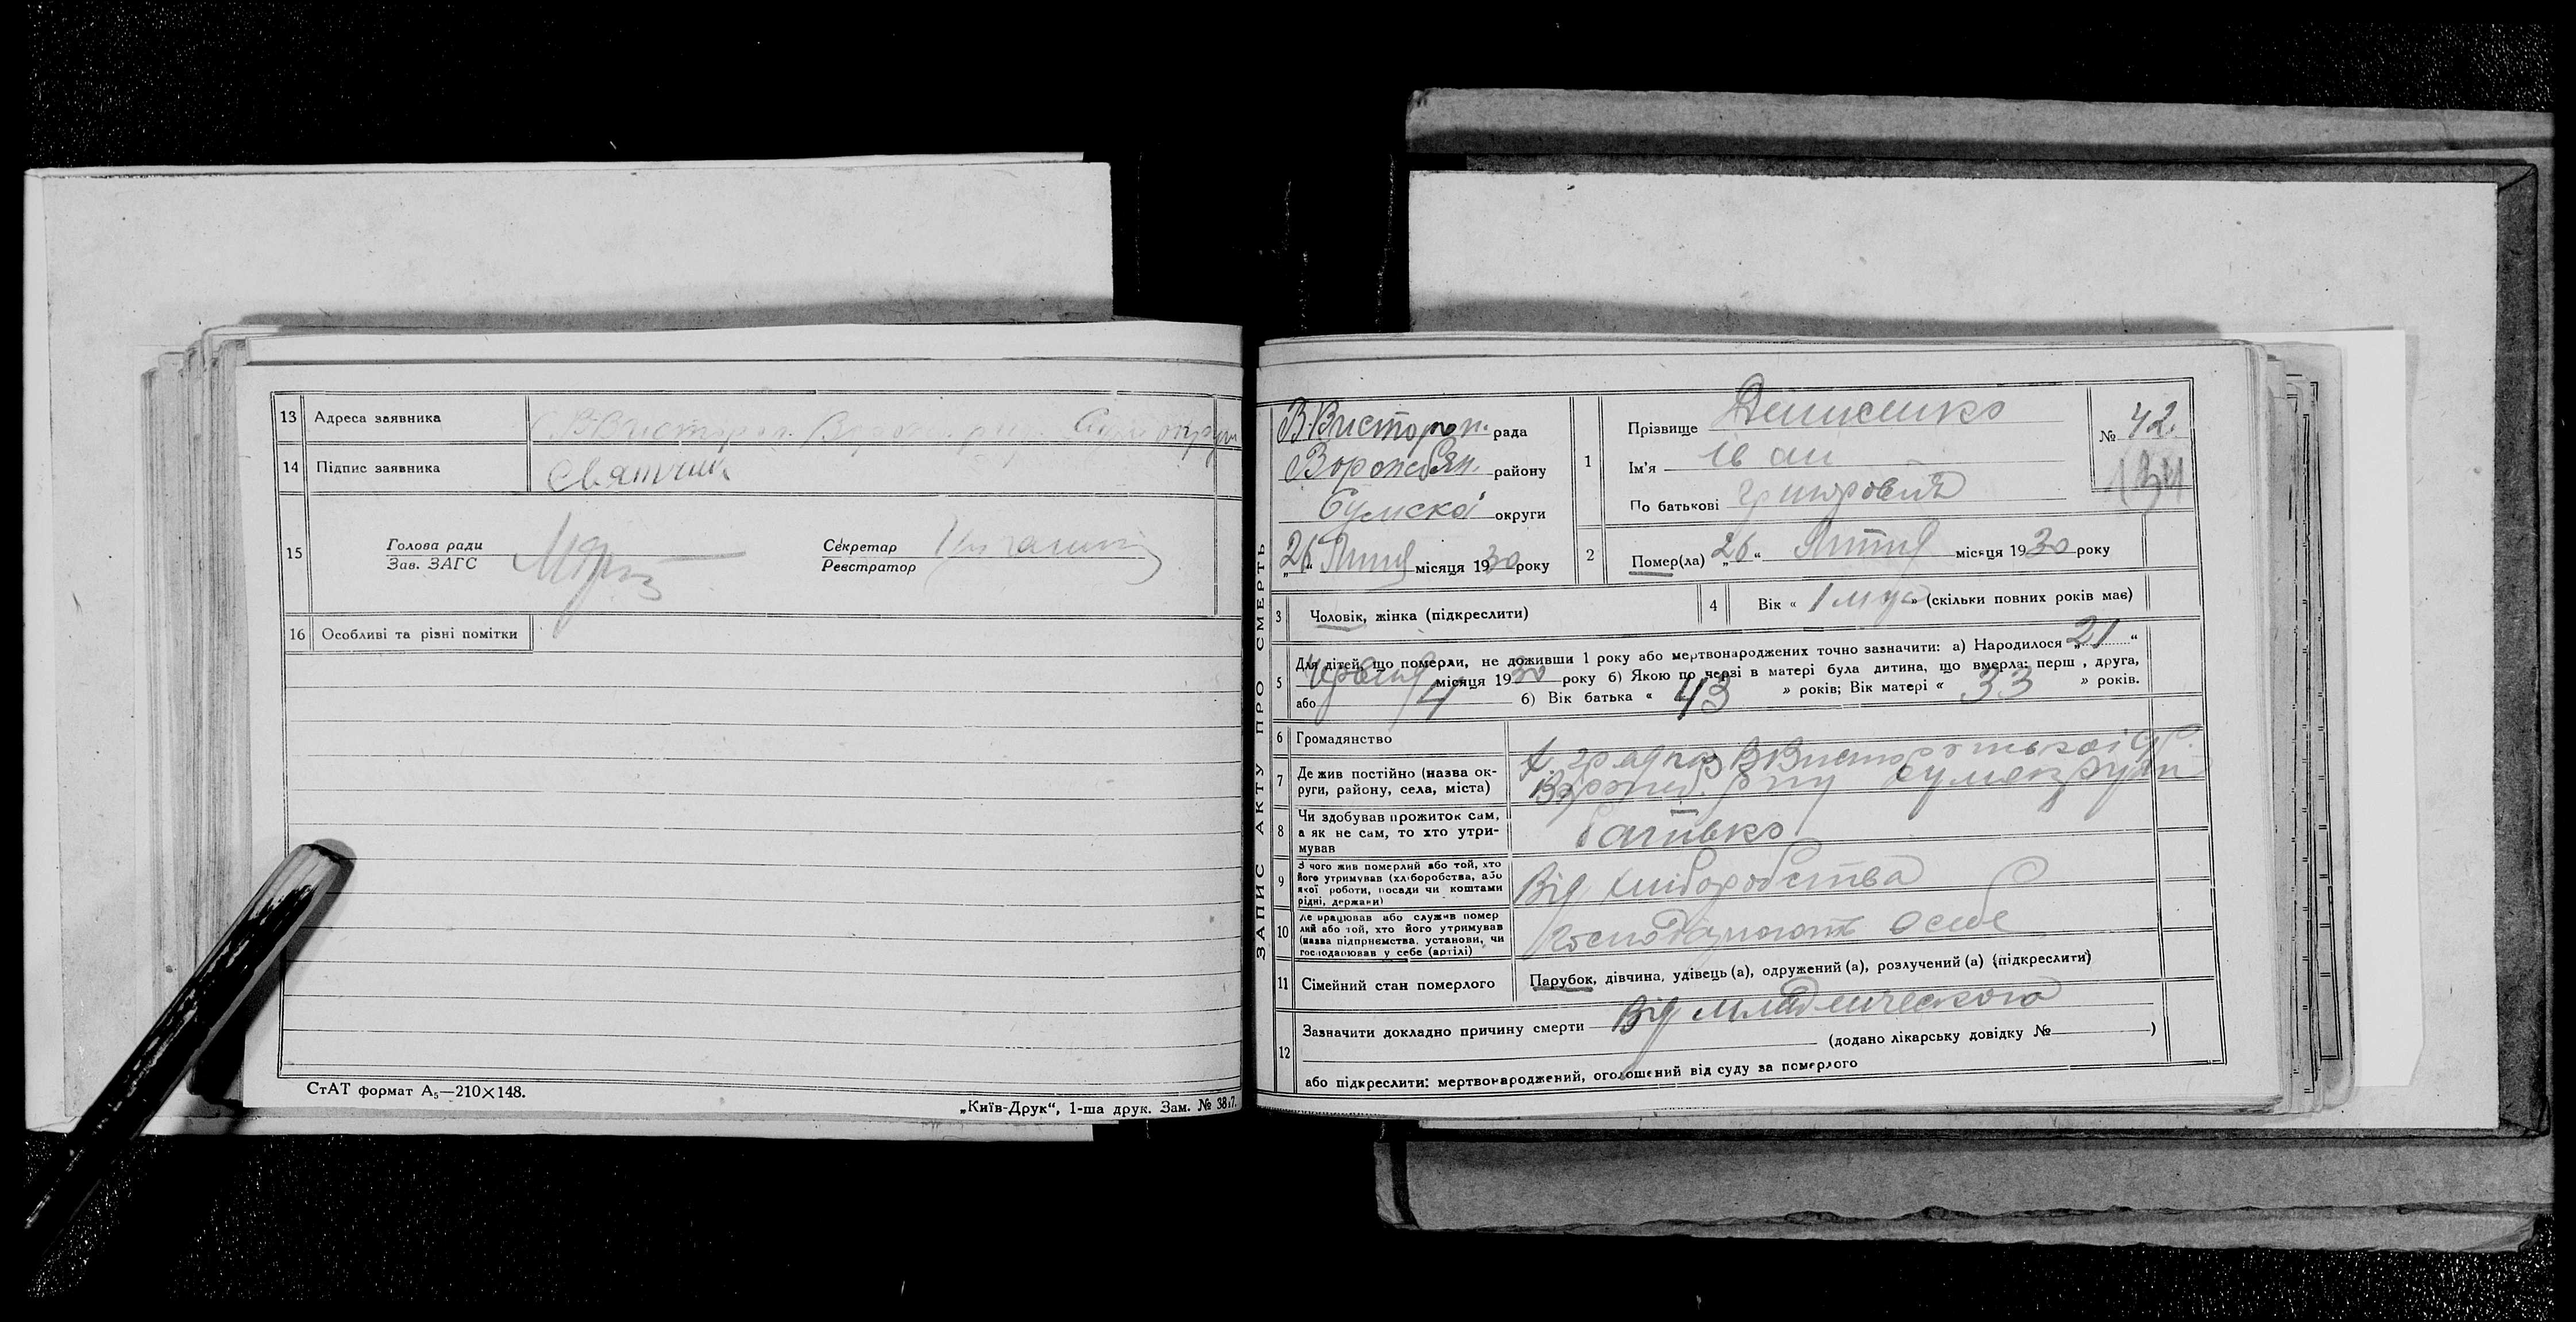 13 Адреса заявника В Висторон. Ворожб. р-ну Сум округи
14 Підпис заявника Святчик
15 Голова ради
Зав. ЗАГС
Секретар
Реєстратор
16 Особливі та різні помітки
СтАТ формат А₅—210×148.
„Київ-Друк“, 1-ша друк. Зам. №
ЗАПИС АКТУ ПРО СМЕРТЬ
В.Висторон. рада
Ворожбян. району
Сумскої округи
„26“ Липня місяця 1930 року
1 Прізвище Денисенко
Ім'я Іван
По батькові Григорович
№ 42.
2 Помер(ла) „26“ Липня місяця 1930 року
3 Чоловік, жінка (підкреслити)
4 Вік « 1 міс » (скільки повних років має)
5 Для дітей, що померли, не доживши 1 року або мертвонароджених точно зазначити: а) Народилося „21“
Червня місяця 1930 року б) Якою по черзі в матері була дитина, що вмерла: перш , друга,
або 4 б) Вік батька « 43 » років; Вік матері « 33 » років.
6 Громадянство
7 Де жив постійно (назва округи, району, села, міста)
8 Чи здобував прожиток сам,
а як не сам, то хто утримував
батько
9 З чого жив померлий або той, хто
його утримував (хліборобства, або
якої роботи, посади чи коштами
рідні, держави)
Від хліборобства
10 Де працював або служив померлий або той, хто його утримував
(назва підприємства, установи, чи
господарював у себе (артілі)
11 Сімейний стан померлого Парубок, дівчина, удівець (а), одружений (а), розлучений (а) (підкреслити)
12 Зазначити докладно причину смерти Від младенческого
(додано лікарську довідку № )
або підкреслити: мертвонароджений, оголошений від суду за померлого